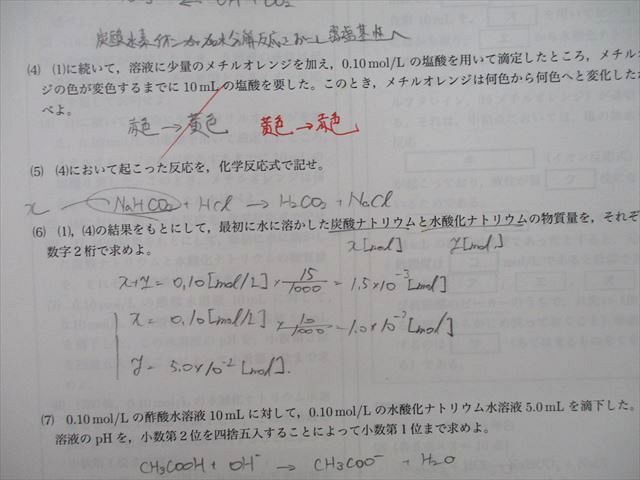 OH + CO₂
炭酸水素イオンが加水分解反応をおこし弱塩基性へ
(4) (1)に続いて，溶液に少量のメチルオレンジを加え，0.10 mol/L の塩酸を用いて滴定したところ，メチルオレ
ジの色が変色するまでに 10 mL の塩酸を要した。このとき，メチルオレンジは何色から何色へと変化したか
べよ。
赤色 → 黄色 黄色 → 赤色
(5) (4)において起こった反応を，化学反応式で記せ。
x NaHCO₂ + HCl → H₂CO₂ + NaCl
(6) (1)，(4)の結果をもとにして，最初に水に溶かした炭酸ナトリウムと水酸化ナトリウムの物質量を，それぞ
数字 2 桁で求めよ。
x[mol] y[mol]
x+y = 0.10[mol/L] × 15/1000 = 1.5×10⁻³[mol]
x = 0.10[mol/L] × 10/1000 = 1.0×10⁻³[mol]
y = 5.0×10⁻²[mol].
(7) 0.10 mol/L の酢酸水溶液 10 mL に対して，0.10 mol/L の水酸化ナトリウム水溶液 5.0 mL を滴下した。
溶液の pH を，小数第 2 位を四捨五入することによって小数第 1 位まで求めよ。
CH₃COOH + OH⁻ → CH₃COO⁻ + H₂O